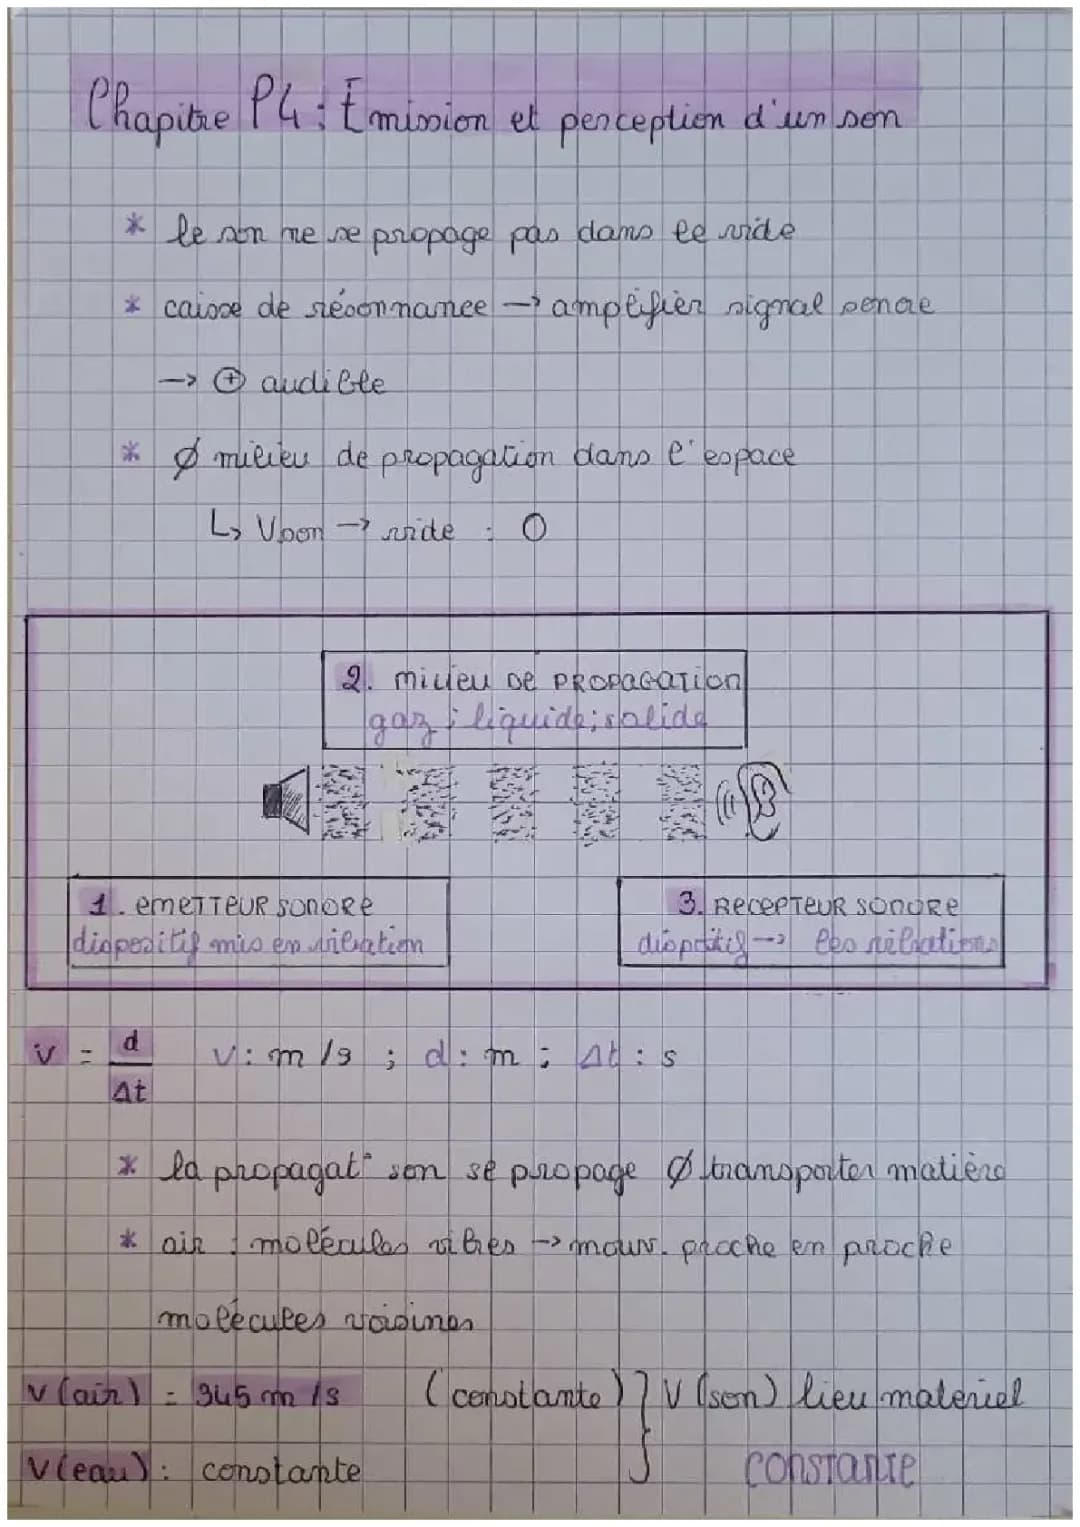 Chapitre P4 : Émission et perception d'un son
* le son ne se propage pas dans le vide
* caisse de résonnance → amplifier signal sonore
→ ⊕ audible
* Ø milieu de propagation dans l'espace
↳ Vson → vide : 0
2. milieu de PROPAGATION
gaz ; liquide ; solide
1. emeTTeUR sonore
dispositif mis en vibration
3. RECEPTEUR SONORE
dispositif → les vibrations
v = d/Δt v : m/s ; d : m ; Δt : s
* la propagat° son se propage Ø transporter matière
* air : molécules vibres → mouv. proche en proche
molécules voisines
v (air) = 345 m/s (constante) } V (son) lieu matériel
v (eau) : constante constante